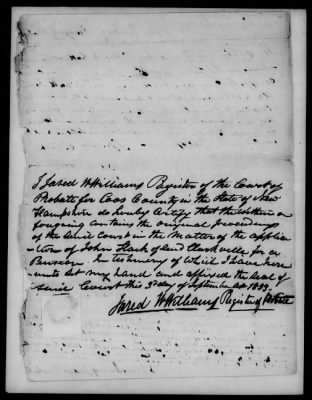 I Jared W Williams Register of the Court of
Probate for Coos County in the State of New
Hampshire do hereby Certify that the within
foregoing contains the original proceedings
of the said Court in the Matter of the applica
tion of John of said Clarksville for a
Pension. In testimony of which I have here
unto set my hand and affixed the seal of
said Court this 3d day of September AD 1832
Jared W Williams Register of Probate